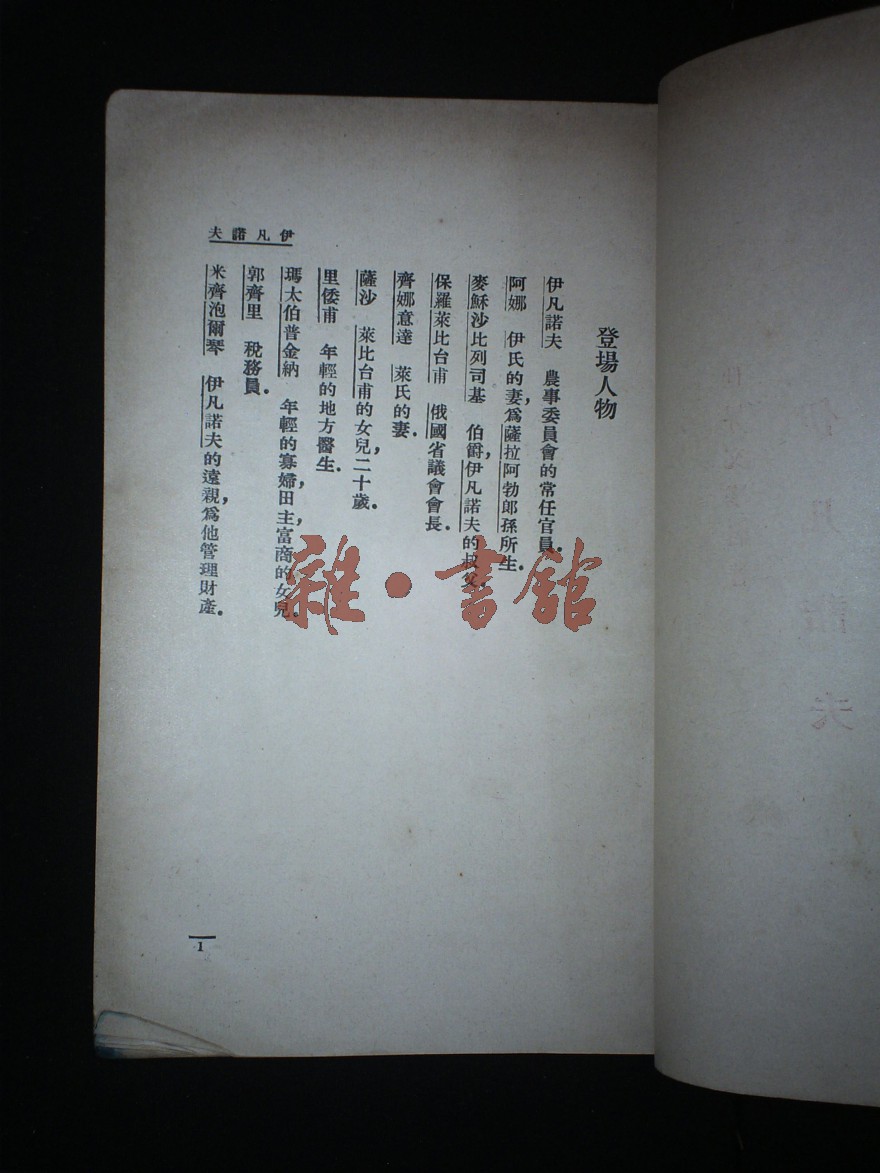 伊凡諾夫
登場人物
伊凡諾夫　農事委員會的常任官員．
阿娜　伊氏的妻，為薩拉阿勃郎孫所生．
麥穌沙比列司基　伯爵，伊凡諾夫的叔父．
保羅萊比台甫　俄國省議會會長．
齊娜意達　萊氏的妻．
薩沙　萊比台甫的女兒，二十歲．
里倭甫　年輕的地方醫生．
瑪太伯普金納　年輕的寡婦，田主，富商的女兒．
郭齊里　稅務員．
米齊泡爾琴　伊凡諾夫的遠親，為他管理財產．
1
雜·書館